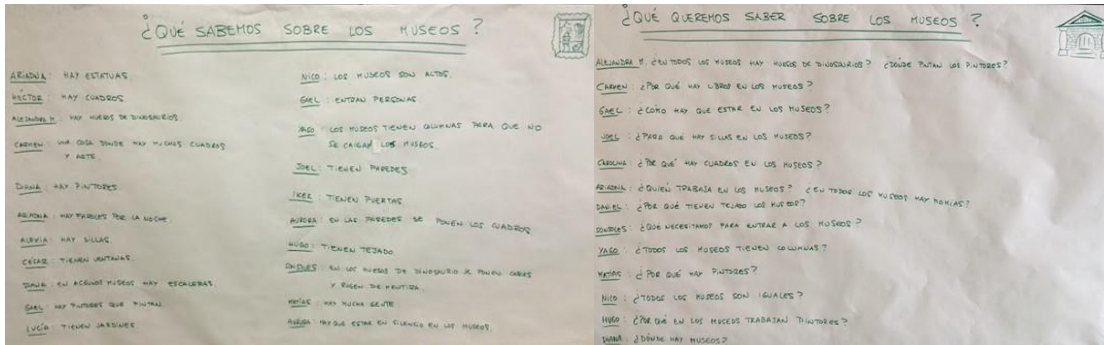 ¿QUÉ SABEMOS SOBRE LOS MUSEOS?
ARIADNA: HAY ESTATUAS.
HÉCTOR: HAY CUADROS
ALEJANDRA M.: HAY HUESOS DE DINOSAURIOS.
CARMEN: UNA COSA DONDE HAY MUCHOS CUADROS
Y ARTE.
DIANA: HAY PINTORES.
ARIADNA: HAY FAROLES POR LA NOCHE
ALEXIA: HAY SILLAS.
CÉSAR: TIENEN VENTANAS.
DIANA: EN ALGUNOS MUSEOS HAY ESCALERAS.
GAEL: HAY PINTORES QUE PINTAN.
LUCÍA: TIENEN JARDINES.
NICO: LOS MUSEOS SON ALTOS.
GAEL: ENTRAN PERSONAS.
YAGO: LOS MUSEOS TIENEN COLUMNAS PARA QUE NO
SE CAIGAN LOS MUSEOS.
JOEL: TIENEN PAREDES
IKER: TIENEN PUERTAS
AURORA: EN LAS PAREDES SE PONEN LOS CUADROS.
HUGO: TIENEN TEJADO
EN LOS HUESOS DE DINOSAURIO SE PONEN
Y DE MENTIRA
MATÍAS: HAY MUCHA GENTE
AURORA: HAY QUE ESTAR EN SILENCIO EN LOS MUSEOS.
¿QUÉ QUEREMOS SABER SOBRE LOS MUSEOS?
ALEJANDRA M. ¿EN TODOS LOS MUSEOS HAY HUESOS DE DINOSAURIOS? ¿DÓNDE PINTAN LOS PINTORES?
CARMEN: ¿POR QUÉ HAY LIBROS EN LOS MUSEOS?
GAEL: ¿CÓMO HAY QUE ESTAR EN LOS MUSEOS?
JOEL: ¿PARA QUÉ HAY SILLAS EN LOS MUSEOS?
CAROLINA: ¿POR QUÉ HAY CUADROS EN LOS MUSEOS?
ARIADNA: ¿QUIÉN TRABAJA EN LOS MUSEOS? ¿EN TODOS LOS MUSEOS HAY MOMIAS?
DANIEL: ¿POR QUÉ TIENEN TEJADO LOS MUSEOS?
CONSOLES: ¿QUÉ NECESITAMOS PARA ENTRAR A LOS MUSEOS?
YAGO: ¿TODOS LOS MUSEOS TIENEN COLUMNAS?
MATÍAS: ¿POR QUÉ HAY PINTORES?
NICO: ¿TODOS LOS MUSEOS SON IGUALES?
HUGO: ¿POR QUÉ EN LOS MUSEOS TRABAJAN PINTORES?
DIANA: ¿DÓNDE HAY MUSEOS?